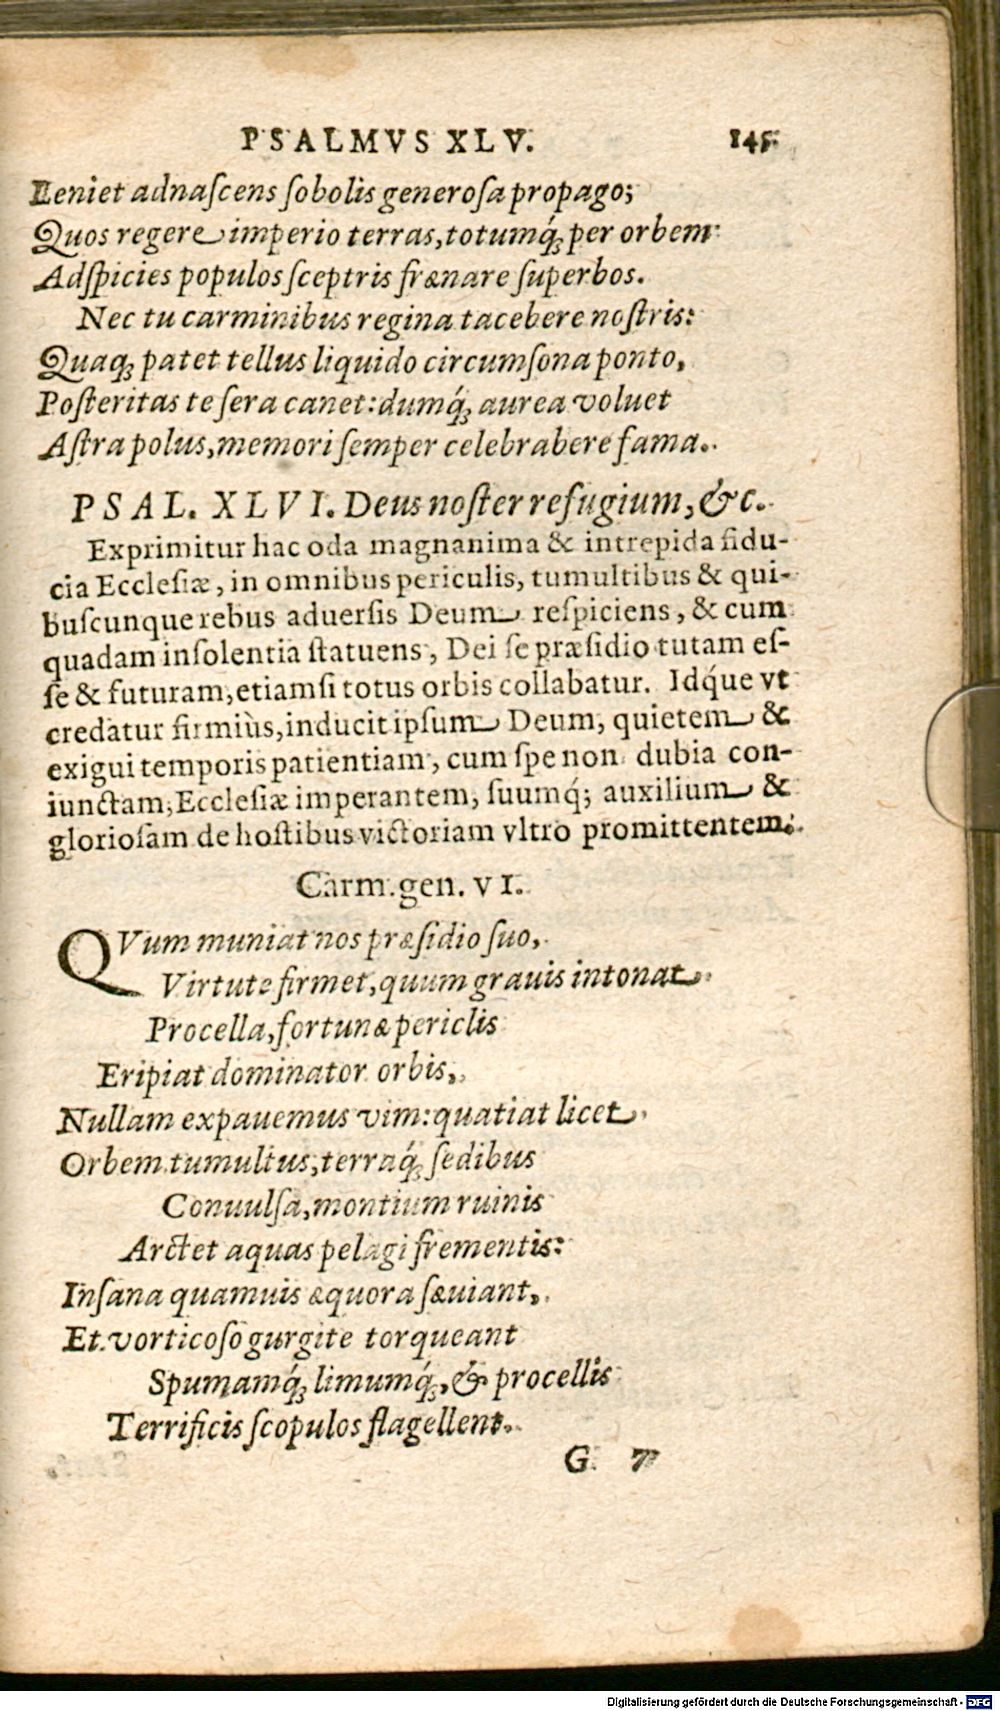 PSALMVS XLV. 145
Leniet adnaſcens ſobolis generoſa propago;
Quos regere imperio terras, totumq́; per orbem
Adſpicies populos ſceptris frænare ſuperbos.
Nec tu carminibus regina tacebere noſtris:
Quaq; patet tellus liquido circumſona ponto,
Poſteritas te ſera canet: dumq́; aurea voluet
Aſtra polus, memori ſemper celebrabere fama.
PSAL. XLVI. Deus noſter refugium, &c.
Exprimitur hac oda magnanima & intrepida fidu-
cia Eccleſiæ, in omnibus periculis, tumultibus & qui-
buſcunque rebus aduerſis Deum reſpiciens, & cum
quadam inſolentia ſtatuens, Dei ſe præſidio tutam eſ-
ſe & futuram, etiamſi totus orbis collabatur. Idq́ue vt
credatur firmiùs, inducit ipſum Deum, quietem &
exigui temporis patientiam, cum ſpe non dubia con-
iunctam, Eccleſiæ imperantem, ſuumq́; auxilium &
glorioſam de hoſtibus victoriam vltro promittentem.
Carm. gen. VI.
QVum muniat nos præſidio ſuo,
Virtute firmet, quum grauis intonat
Procella, fortunæ periclis
Eripiat dominator orbis,
Nullam expauemus vim: quatiat licet
Orbem tumultus, terraq́; ſedibus
Conuulſa, montium ruinis
Arctet aquas pelagi frementis:
Inſana quamuis æquora ſæuiant,
Et vorticoſo gurgite torqueant
Spumamq́; limumq́;, & procellis
Terrificis ſcopulos flagellent.
G 7
Digitalisierung gefördert durch die Deutsche Forschungsgemeinschaft - DFG